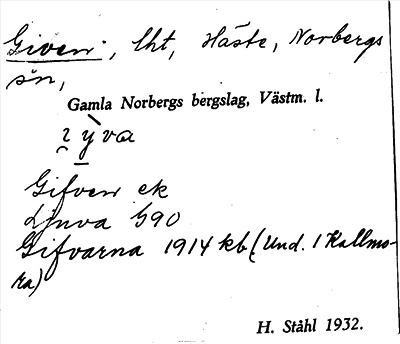 Given, lht, Häste, Norbergs
sn,
Gamla Norbergs bergslag, Västm. l.
ɿ y̱va
Gifven ek
Ljuva G90
Gifvarna 1914 kb (Und. 1 Kallmo-
ra)
H. Ståhl 1932.